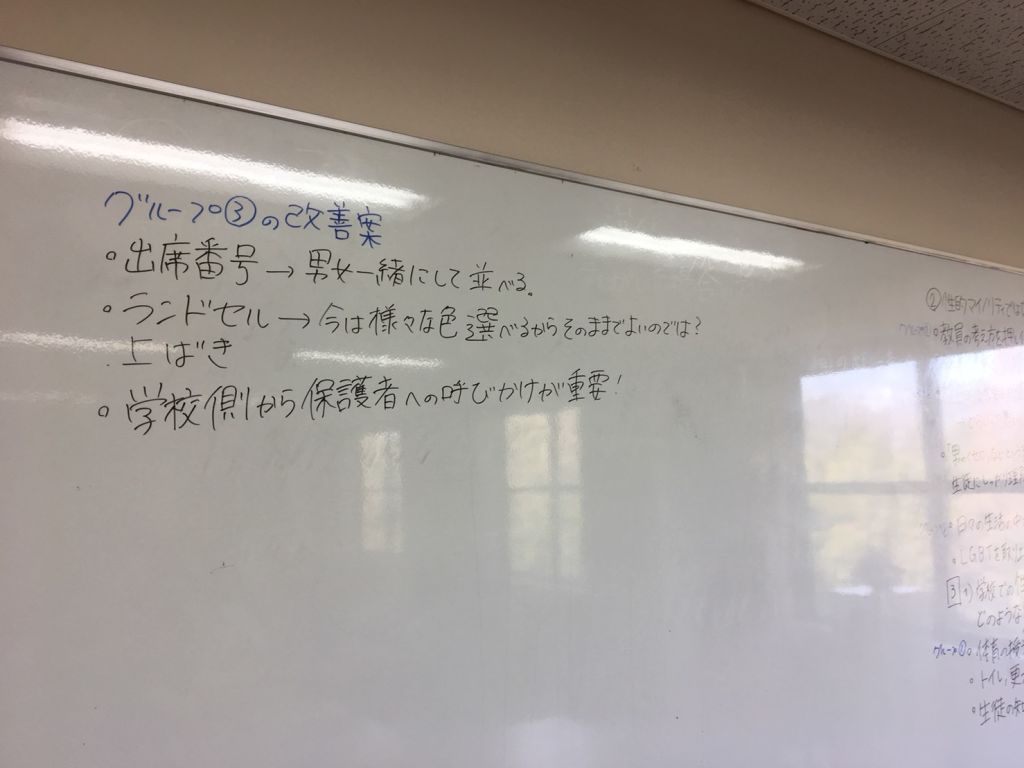 グループ③の改善案
○出席番号→男女一緒にして並べる。
○ランドセル→今は様々な色選べるからそのままでよいのでは?
上ばき
○学校側から保護者への呼びかけが重要!
②性的マイノリティ
○教員の考え方を押し
生徒に
日々の生活の中
○LGBTを取り上
③ 1)学校での
どのような
グループ①○体育の
○トイレ,更
○生徒の